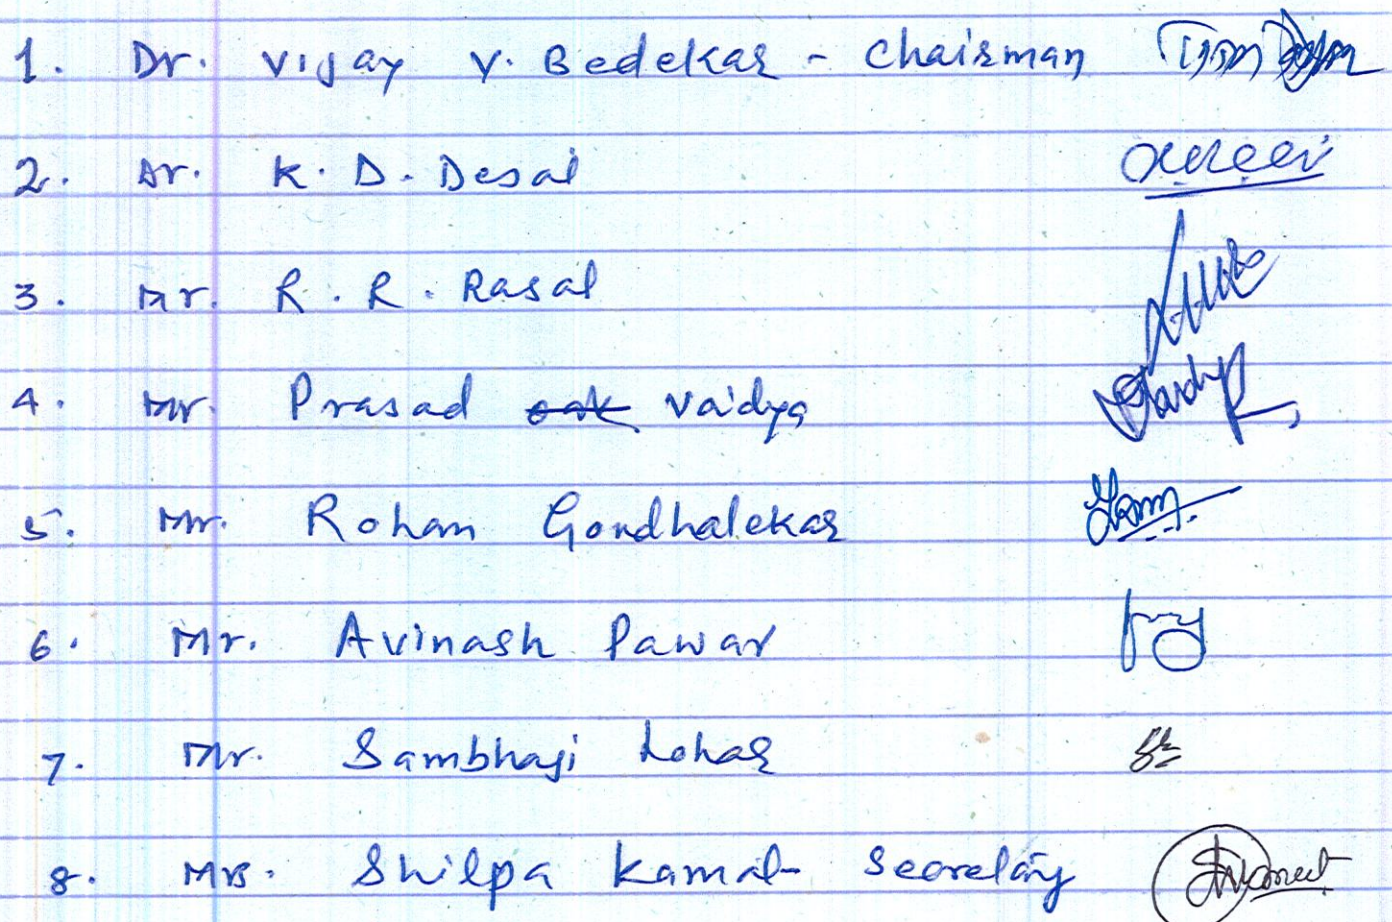 1. Dr. Vijay V. Bedekar - Chairman
2. Dr. K. D. Desai
3. Mr. R. R. Rasal
4. Mr. Prasad oak Vaidya
5. Mr. Rohan Gondhalekar
6. Mr. Avinash Pawar
7. Mr. Sambhaji Lohar
8. Mrs. Shilpa Kamat - Secretary